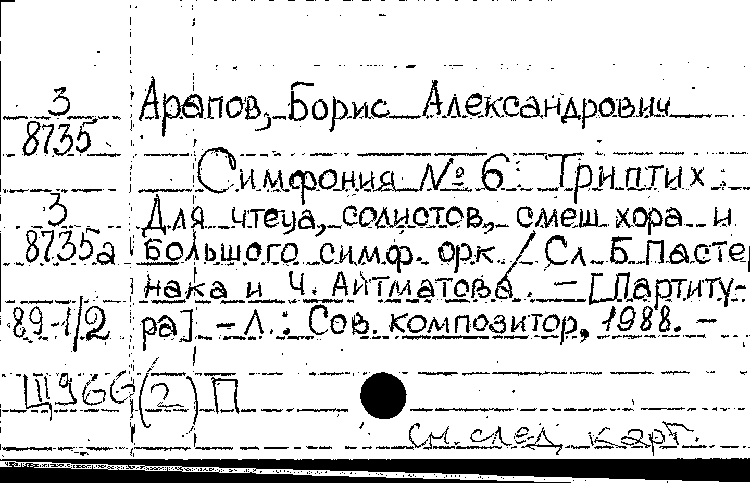 З
8735
Арапов, Борис Александрович
Симфония № 6: Триптих:
З
8735а
Для чтеца, солистов, смеш хора и
большого симф. орк. / Сл. Б. Пастер
нака и Ч. Айтматова. – [Партиту-
89-1/2
ра]. – Л.: Сов. композитор, 1988. –
Щ966(2)П
См. след. карт.